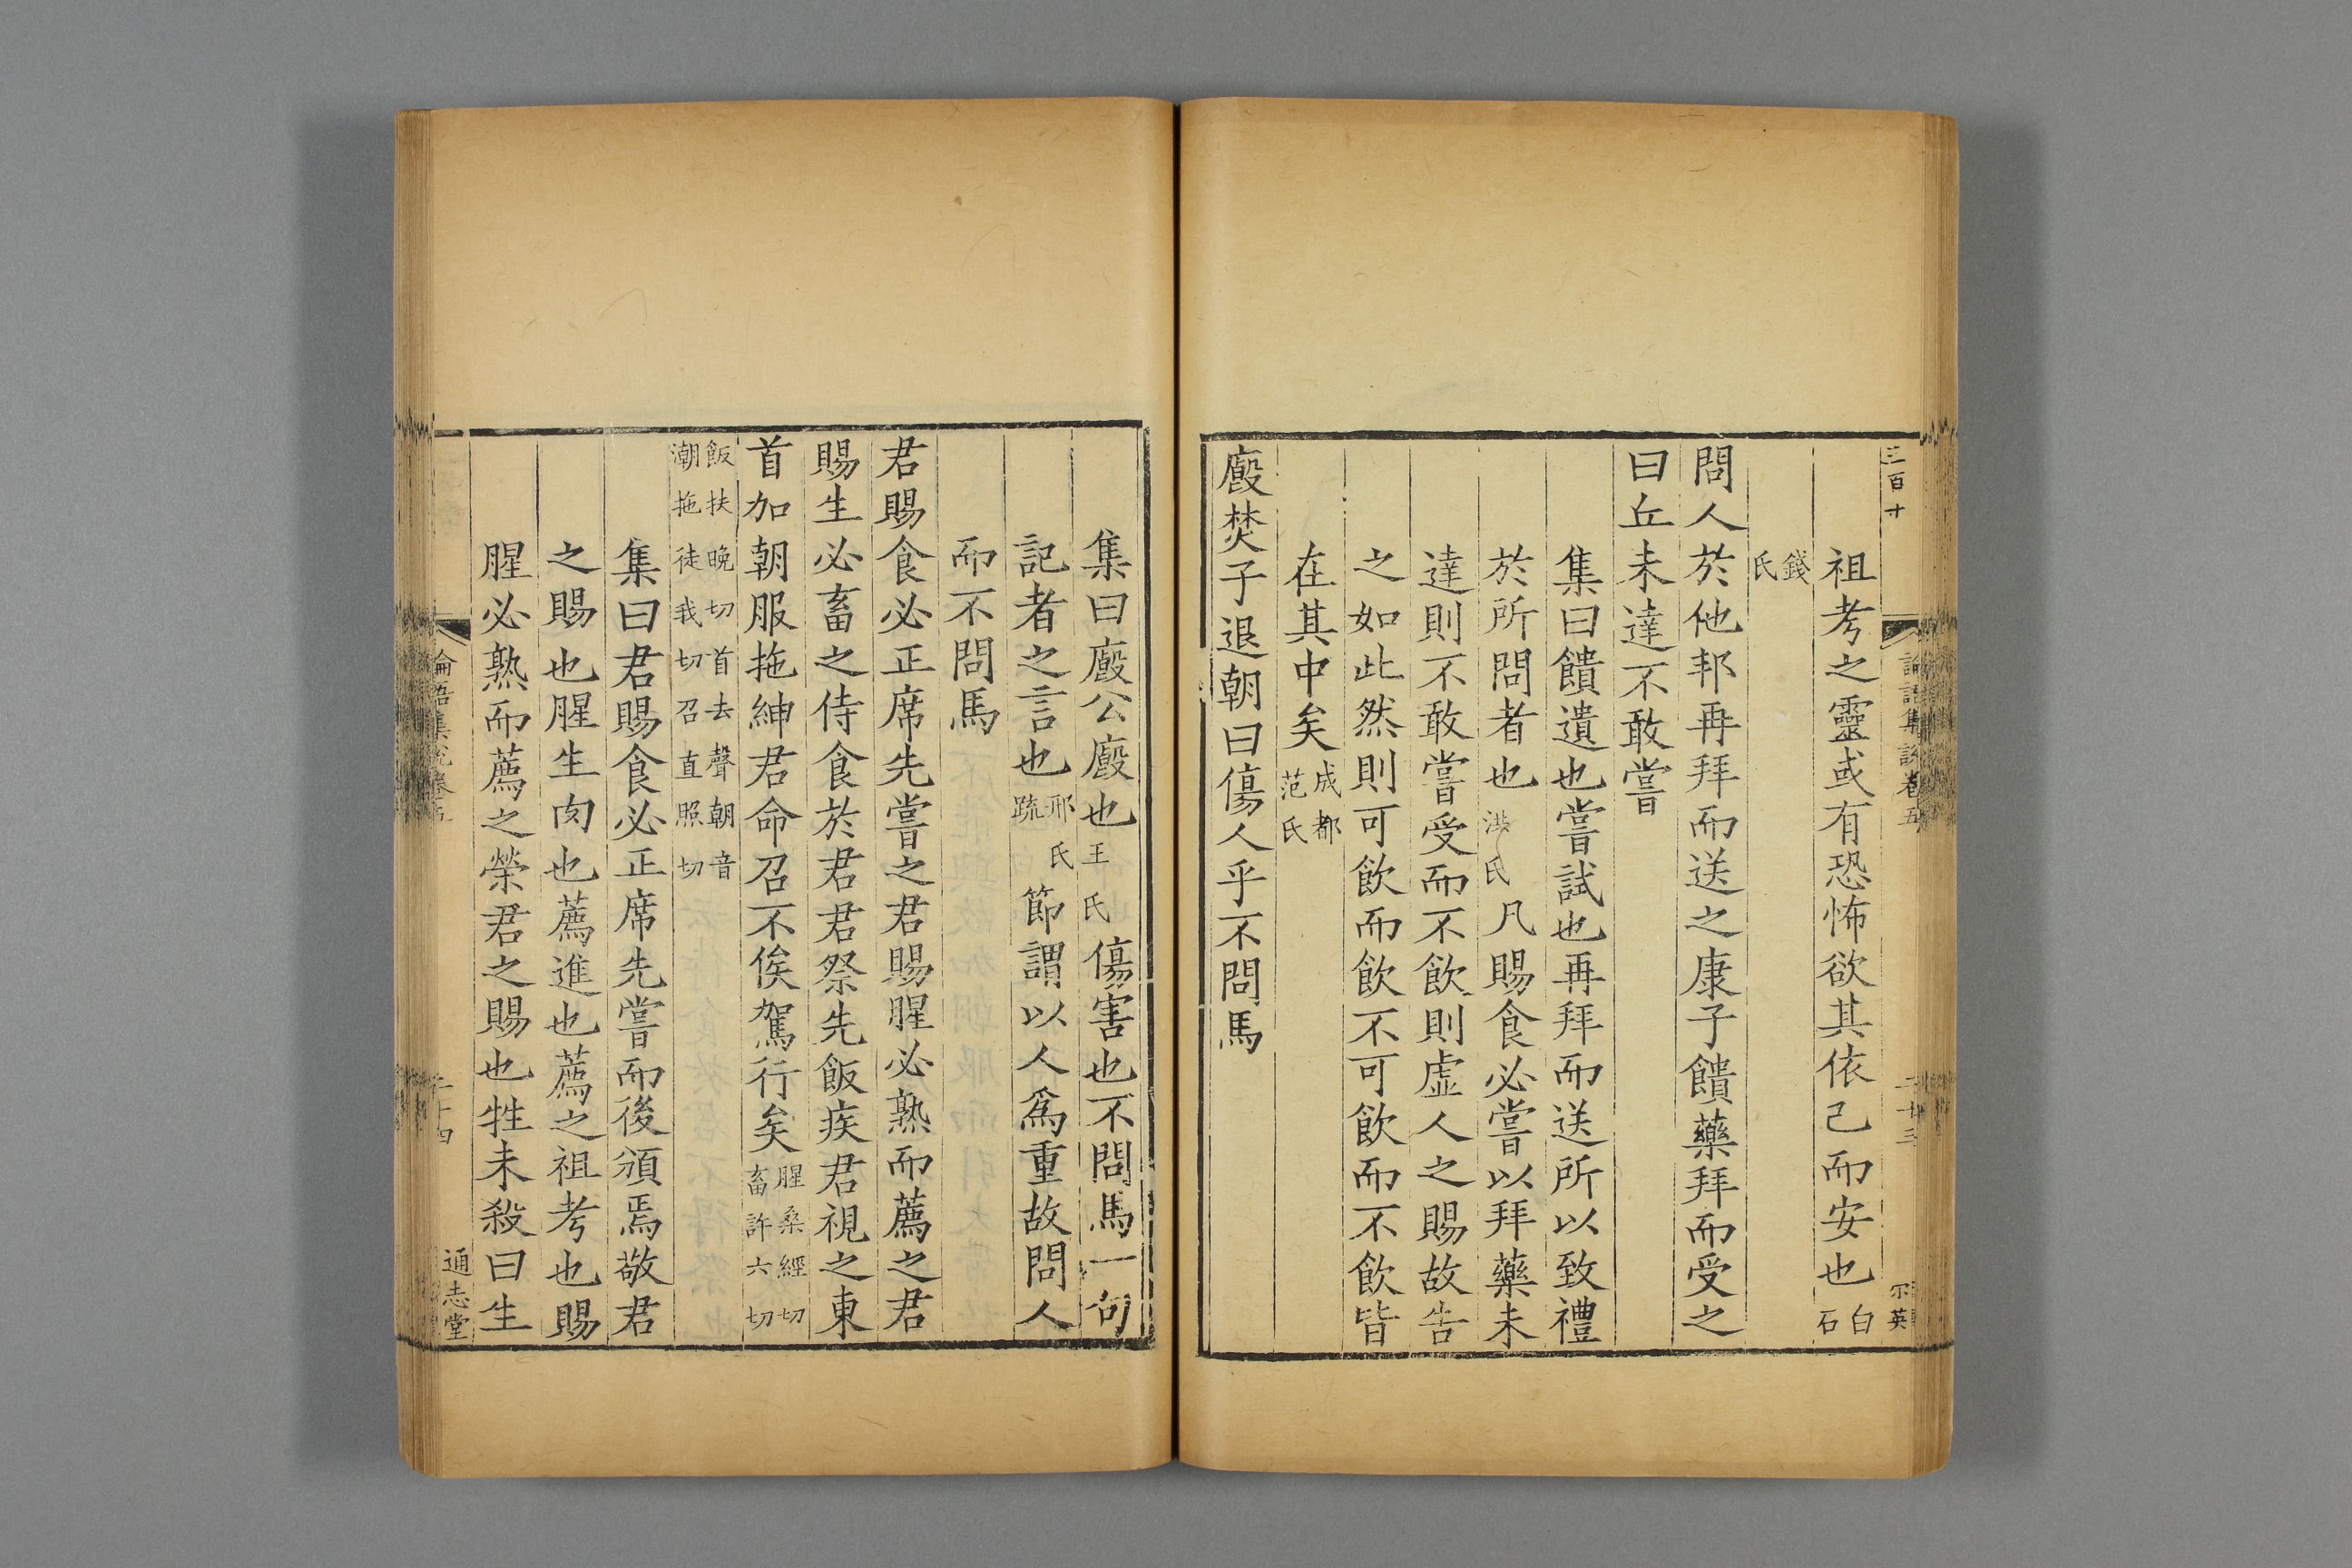 三百十
論語集說卷五
二十三
祖考之靈或有恐怖欲其依己而安也白石
錢氏
問人於他邦再拜而送之康子饋藥拜而受之
曰丘未達不敢嘗
集曰饋遺也嘗試也再拜而送所以致禮
於所問者也洪氏凡賜食必嘗以拜藥未
達則不敢嘗受而不飲則虛人之賜故告
之如此然則可飲而飲不可飲而不飲皆
在其中矣成都范氏
廄焚子退朝曰傷人乎不問馬
集曰廄公廄也王氏傷害也不問馬一句
記者之言也邢氏疏節謂以人爲重故問人
而不問馬
君賜食必正席先嘗之君賜腥必熟而薦之君
賜生必畜之侍食於君君祭先飯疾君視之東
首加朝服拖紳君命召不俟駕行矣腥桑經切畜許六切
飯扶晚切首去聲朝音潮拖徒我切召直照切
集曰君賜食必正席先嘗而後頒焉敬君
之賜也腥生肉也薦進也薦之祖考也賜
腥必熟而薦之榮君之賜也牲未殺曰生
論語集說卷五
二十四
通志堂